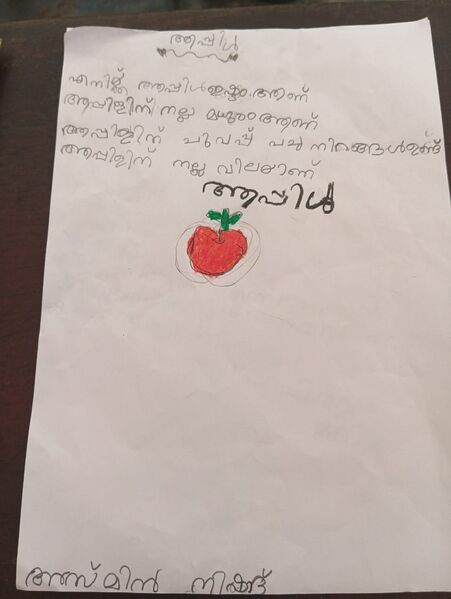 ആപ്പിൾ
എനിക്ക് ആപ്പിൾ ഇഷ്ടം ആണ്
ആപ്പിളിന് നല്ല മധുരം ആണ്
ആപ്പിളിന് ചുവപ്പ് പച്ച നിറങ്ങൾ ഉണ്ട്
ആപ്പിളിന് നല്ല വിലയാണ്
ആപ്പിൾ
അസ്മിൻ